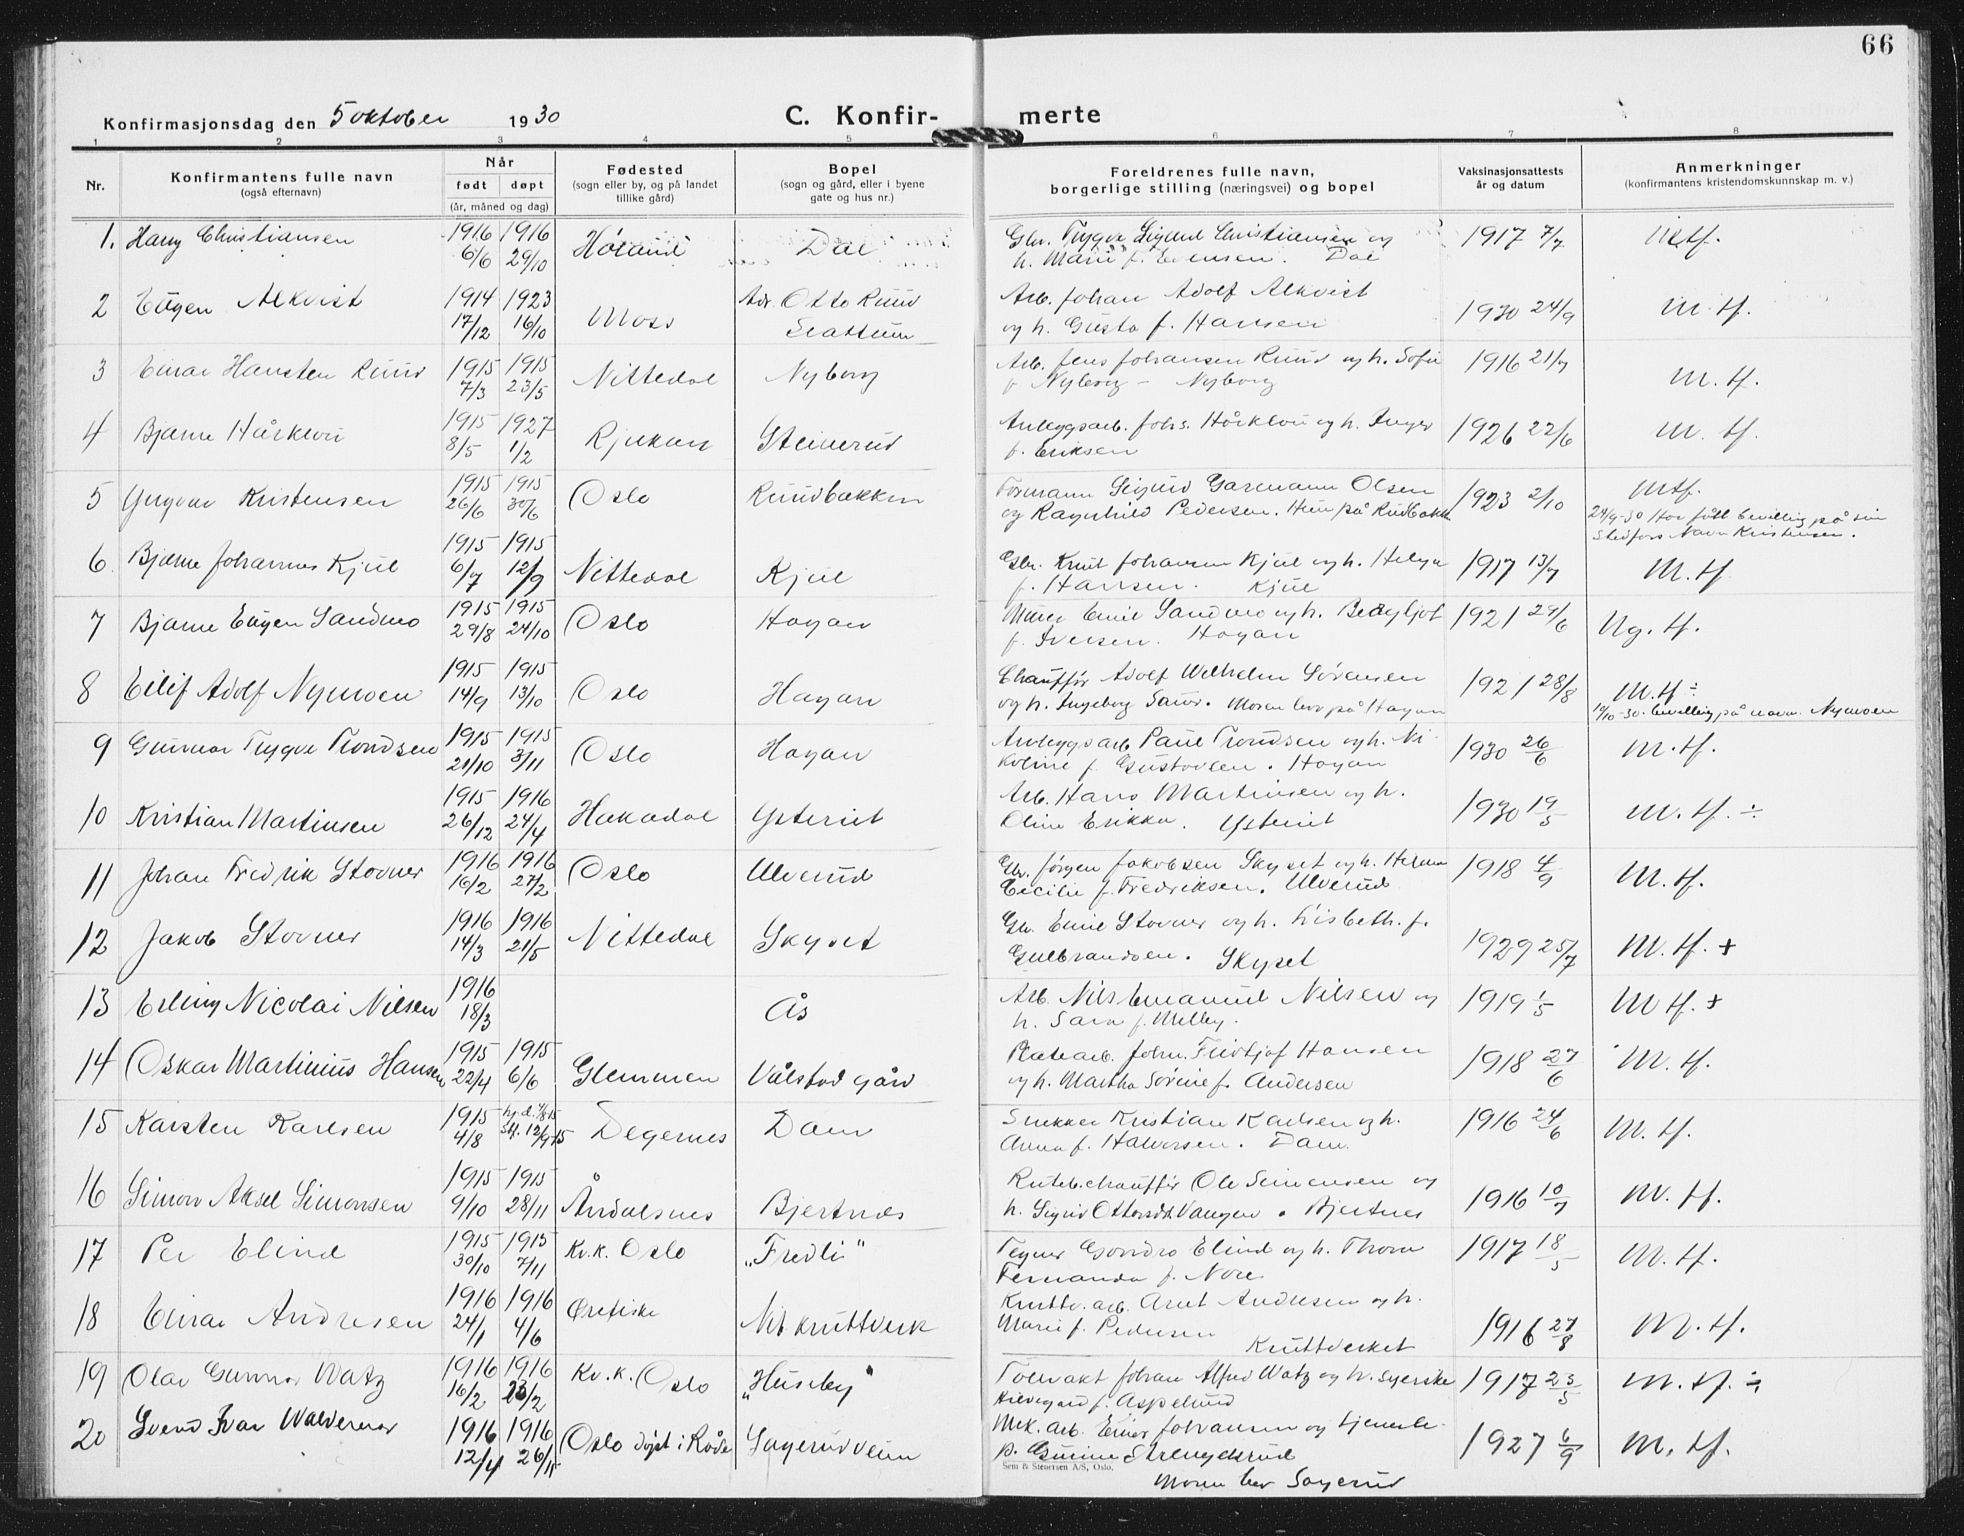 66
Konfirmasjonsdag den 5 oktober 1930 C. Konfir- merte
1 2 3 4 5 6 7 8
Nr. Konfirmantens fulle navn (også efternavn) Når født døpt (år, måned og dag) Fødested (sogn eller by, og på landet tillike gård) Bopel (sogn og gård, eller i byene gate og hus nr.) Foreldrenes fulle navn, borgerlige stilling (næringsvei) og bopel Vaksinasjonsattests år og datum Anmerkninger (konfirmantens kristendomskunnskap m. v.)
1. Harry Christiansen 1916 6/6 1916 29/10 Høland Dal Gbr. Trygve Sigurd Christiansen og h. Marie f. Evensen. Dal 1917 7/7 Mtf.
2 Eugen Alkvist 1914 17/12 1923 16/10 Moss Adr. Otto Ruud Slattum Arb. Johan Adolf Alkvist og h. Gusta f. Hansen 1930 24/9 M. tf.
3 Einar Hansten Ruud 1915 7/3 1915 23/5 Nittedal Nyborg Arb. Jens Johansen Ruud og h. Sofie f. Nyborg - Nyborg 1916 21/7 M. tf.
4 Bjarne Hårklou 1915 8/5 1927 1/2 Rjukan Steinerud Anleggsarb. Johs. Hårklou og h. Inger f. Eriksen 1926 22/6 M. tf.
5 Yngvar Kristensen 1915 26/6 1915 30/6 Oslo Ruudbakken Formann Sigurd Garmann Olsen og Ragnhild Pedersen. Hun på Rudbakk 1923 2/10 Mtf. 24/9-30 Har fått bevilling på sin Stedfars Navn Kristensen.
6. Bjarne Johannes Kjul 1915 6/7 1915 12/9 Nittedal Kjul Gbr. Knut Johansen Kjul og h. Helga f. Hansen. Kjul 1917 13/7 M. tf
7 Bjarne Eugen Sandmo 1915 29/8 1915 24/10 Oslo Hagan Murer Emil Sandmo og h. Bergljot f. Iversen. Hagan 1921 29/6 Ng. tf.
8 Eilif Adolf Nymoen 1915 14/9 1915 13/10 Oslo Hagan Chauffør Adolf Wilhelm Sørensen og h. Ingeborg Saur. Moren bor på Hagan 1921 28/8 M. tf ÷ 10/10-30. bevilling på navn Nymoen
9 Gunnar Trygve Trondsen 1915 21/10 1915 3/11 Oslo Hagan Anleggsarb Paul Trondsen og h. Nikoline f. Gustavsen. Hagan 1930 26/6 M. tf.
10 Kristian Martinsen 1915 26/12 1916 24/4 Hakadal Ysterud Arb. Hans Martinsen og h. Oline Erikka. Ysterud 1930 19/5 M. tf. ÷
11 Johan Fredrik Stovner 1916 16/2 1916 27/2 Oslo Ulverud Gbr. Jørgen Jakobsen Skyset og h. Helma Cecilie f. Fredriksen. Ulverud. 1918 4/9 M. tf.
12 Jakob Stovner 1916 14/3 1916 21/5 Nittedal Skyset Gbr. Emil Stovner og h. Lisbeth. f. Gulbrandsen. Skyset 1929 25/7 M. tf. +
13 Erling Nicolai Nilsen 1916 18/3 Ås Arb. Nils Emanuel Nilsen og h. Sara f. Melby. 1919 1/5 M tf. +
14 Oskar Martinius Hansen 1915 22/4 1915 6/6 Glemmen Vålstad gård Platearb. Johan Fridtjof Hansen og h. Martha Sørine f. Andersen 1918 27/6 M. tf.
15 Karsten Karlsen 1915 4/8 hj.d. 4/8 15 Stf. 12/9-15 Degernes Dam Snekker Kristian Karlsen og h. Anna f. Halvorsen. Dam. 1916 24/6 M. tf.
16 Simon Aksel Simonsen 1915 9/10 1915 28/11 Åndalsnes Bjertnes Rutebchauffør Ole Simensen og h. Sigrid Ottersdt. Vangen. Bjertnes 1916 10/7 M. tf.
17 Per Elind 1915 30/10 1915 7/11 Kv.k. Oslo „Fredli" Tegner Elind og h. Thora Fernanda f. Nore 1917 18/5 M. tf.
18 Einar Andresen 1916 24/1 1916 4/6 Ørefiske Nit kruttverk Kruttv. arb. Arnt Andresen og h. Marie f. Pedersen Kruttverket 1916 27/8 M. tf.
19 Olav Gunnar Watz 1916 16/2 1916 23/2 Kv.k. Oslo „Huseby" Tollvakt Johan Alfred Watz og h. syerske Hildegard f. Aspelund 1917 23/5 M. tf. ÷
20 Svend Ivar Waldemar 1916 12/4 1916 26/11 Oslo døpt i Råde Sagerudveien Mek. arb. Einar Johansen og tjeneste p. Gunne Strengelsrud 1927 6/9 M. tf.
Sem & Stenersen A/S, Oslo.
Moren bor Sagerud